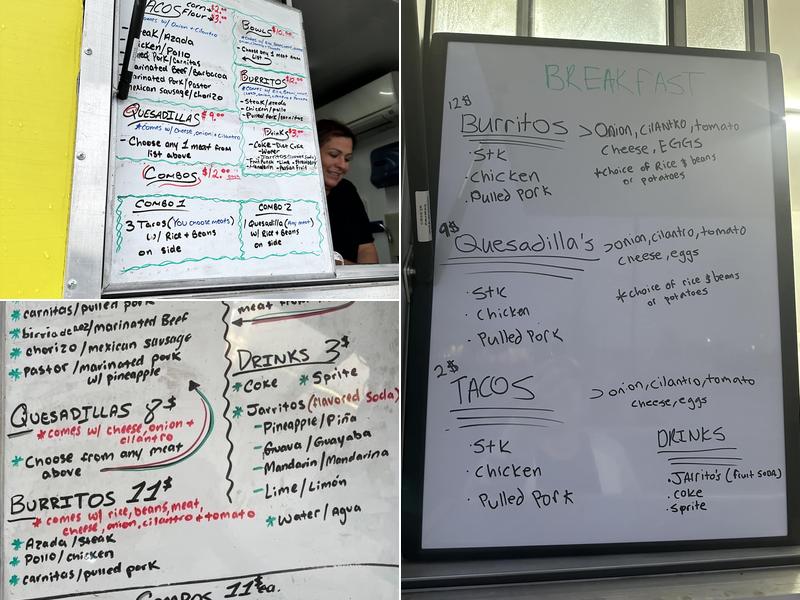 TACOS corn→$2.00
flour→$3.00
*comes w/ Onion + Cilantro
Steak/Azada
Chicken/Pollo
Pork/Carnitas
Marinated Beef/Barbacoa
Marinated Pork/Pastor
Mexican Sausage/chorizo
QUESADILLAS $9.00
*comes w/ Cheese, onion + cilantro
- Choose any 1 meat from
list above
BOWLS $10.00
- Choose any 1 meat from
List
BURRITOS $12.00
- Steak/azada
- Chicken/pollo
- Pulled Pork/carnitas
Drinks $3.00
- Coke - Diet Coke
- Water
- Jarritos
COMBOS $12.00 each
COMBO 1
3 Tacos (You choose meats)
w/ Rice + Beans
on side
COMBO 2
1 Quesadilla (Any meat)
w/ Rice + Beans
on side
*carnitas/pulled pork
*birria de rez/marinated Beef
*chorizo/mexican sausage
*Pastor/marinated pork
w/ pineapple
QUESADILLAS 8$
*comes w/ cheese, onion +
cilantro
*Choose from any meat
above
BURRITOS 11$
*comes w/ rice, beans, meat,
cheese, onion, cilantro + tomato
*Azada/steak
*Pollo/chicken
*carnitas/pulled pork
COMBOS 11$ ea.
meat from
DRINKS 3$
*Coke *Sprite
*Jarritos (flavored Soda)
- Pineapple/Piña
- Guava/Guayaba
- Mandarin/Mandarina
- Lime/Limón
*Water/Agua
BREAKFAST
12$
Burritos >Onion, cilantro, tomato
cheese, EGGS
*choice of Rice & beans
or potatoes
·Stk
·chicken
·Pulled Pork
9$
Quesadilla's >onion, cilantro, tomato
cheese, eggs
*choice of rice & beans
or potatoes
·Stk
·Chicken
·Pulled Pork
2$
TACOS >onion, cilantro, tomato
cheese, eggs
·Stk
·Chicken
·Pulled Pork
DRINKS
·JArrito's (fruit SODA)
·coke
·sprite